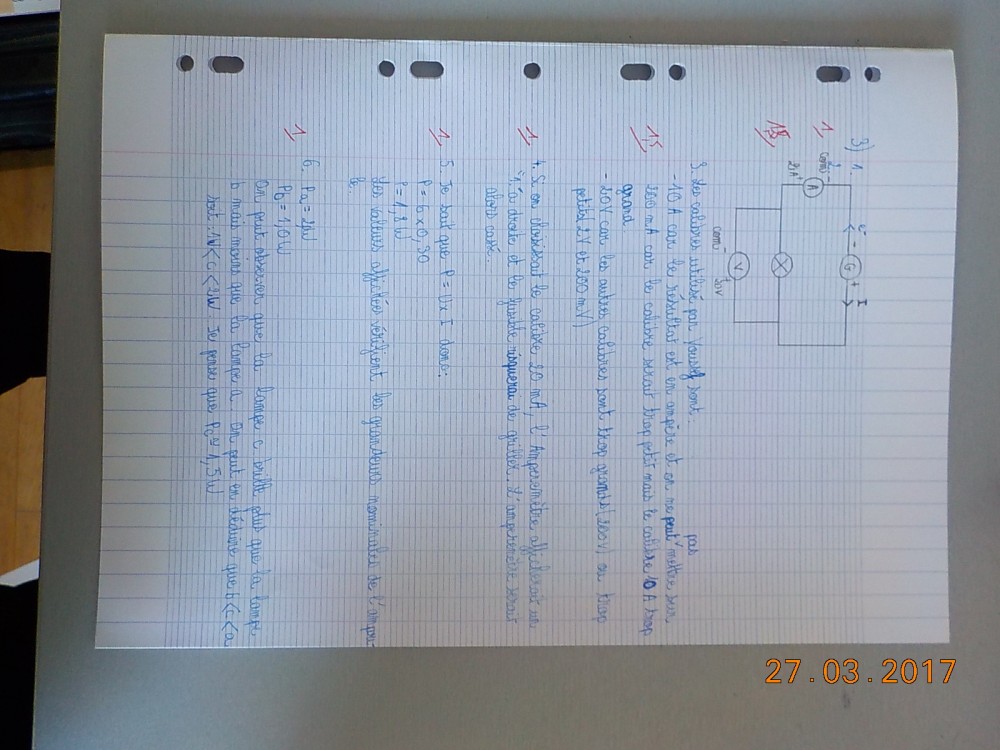 3) 1.
1
1,5
e⁻
I
- G +
com -
A
2A
V
com -
20V
3. Les calibres utilisé par Youssef sont :
pas
- 10 A car le résultat est en ampère et on ne peut mettre sur
200 mA car le calibre serait trop petit mais le calibre 10 A trop
grand.
- 20V car les autres calibres sont trop grands (200V) ou trop
petits (2V et 200 mV)
1,5
4. Si on choisissait le calibre 20 mA, l'Ampèremètre afficherait un
"1" à droite et le fusible risquerai de griller. L'ampèremètre serait
alors cassé.
1
5. Je sait que P = U x I donc :
P = 6 x 0,30
P = 1,8 W
Les valeurs affichées vérifient les grandeurs nominales de l'ampou-
le.
1
6. Pa = 2W
Pb = 1,0W
On peut observer que la lampe c brille plus que la lampe
b mais moins que la lampe a. On peut en déduire que b < c < a
soit : 1W < c < 2W Je pense que Pc ≈ 1,5 W
1
27.03.2017